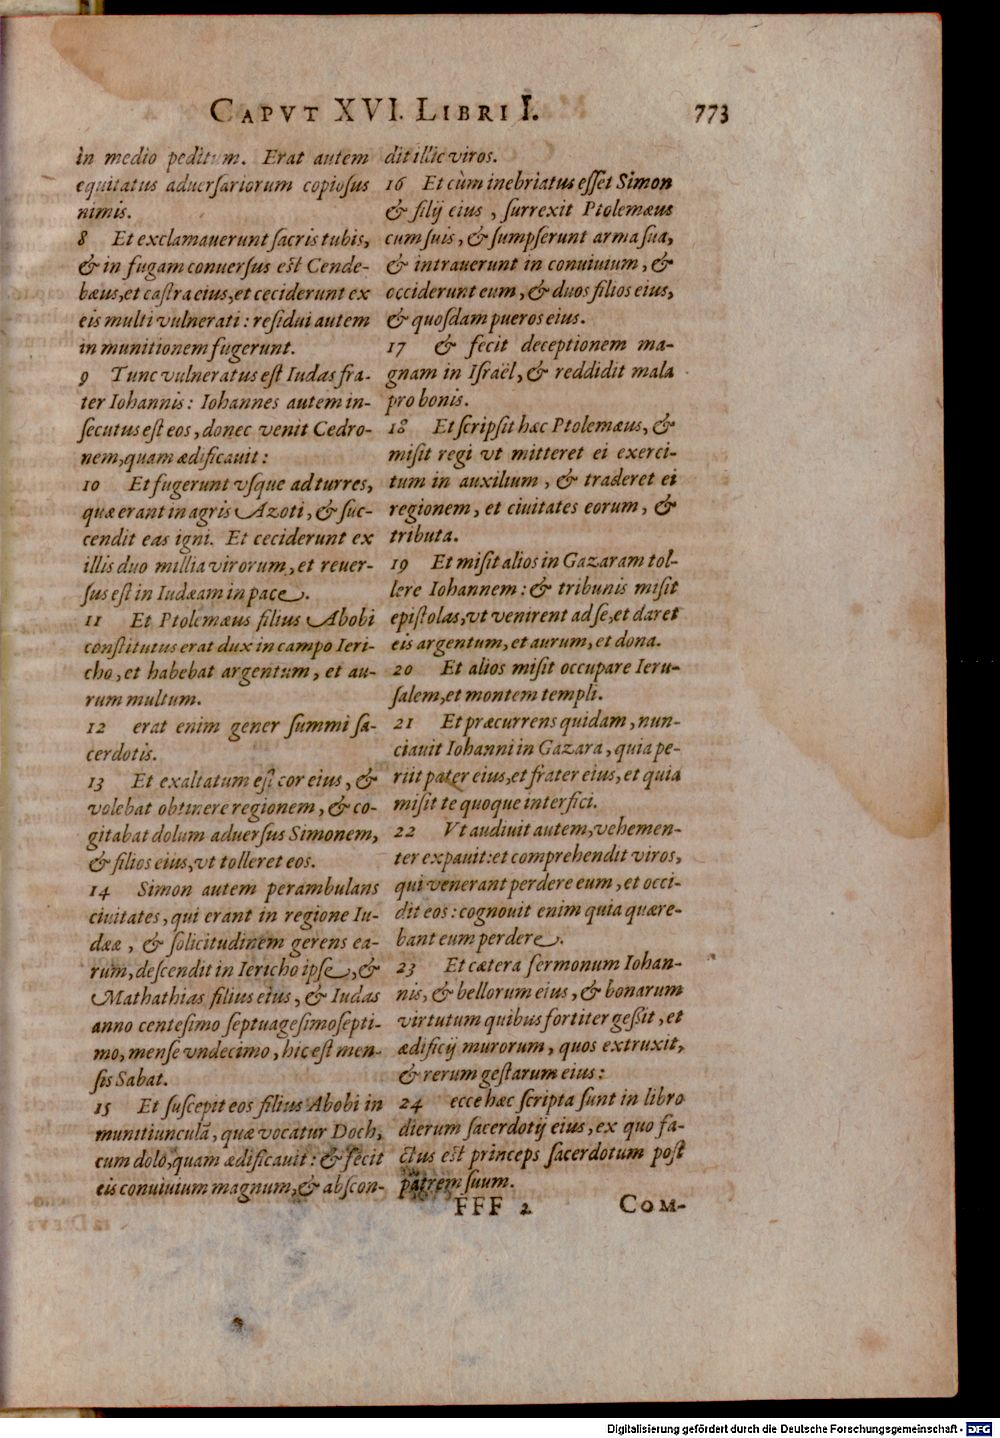 CAPVT XVI. LIBRI I. 773
in medio peditum. Erat autem
equitatus aduersariorum copiosus
nimis.
8 Et exclamauerunt sacris tubis,
& in fugam conuersus est Cende-
bæus, et castra eius, et ceciderunt ex
eis multi vulnerati: residui autem
in munitionem fugerunt.
9 Tunc vulneratus est Iudas fra-
ter Iohannis: Iohannes autem in-
secutus est eos, donec venit Cedro-
nem, quam ædificauit:
10 Et fugerunt vsque ad turres,
quæ erant in agris Azoti, & suc-
cendit eas igni. Et ceciderunt ex
illis duo millia virorum, et reuer-
sus est in Iudæam in pace.
11 Et Ptolemæus filius Abobi
constitutus erat dux in campo Ieri-
cho, et habebat argentum, et au-
rum multum.
12 erat enim gener summi sa-
cerdotis.
13 Et exaltatum est cor eius, &
volebat obtinere regionem, & co-
gitabat dolum aduersus Simonem,
& filios eius, vt tolleret eos.
14 Simon autem perambulans
ciuitates, qui erant in regione Iu-
dææ, & solicitudinem gerens ea-
rum, descendit in Iericho ipse, &
Mathathias filius eius, & Iudas
anno centesimo septuagesimosepti-
mo, mense vndecimo, hic est men-
sis Sabat.
15 Et suscepit eos filius Abobi in
munitiunculā, quæ vocatur Doch,
cum dolo, quam ædificauit: & fecit
eis conuiuium magnum, & abscon-
dit illic viros.
16 Et cùm inebriatus esset Simon
& filij eius, surrexit Ptolemæus
cum suis, & sumpserunt arma sua,
& intrauerunt in conuiuium, &
occiderunt eum, & duos filios eius,
& quosdam pueros eius.
17 & fecit deceptionem ma-
gnam in Israël, & reddidit mala
pro bonis.
18 Et scripsit hæc Ptolemæus, &
misit regi vt mitteret ei exerci-
tum in auxilium, & traderet ei
regionem, et ciuitates eorum, &
tributa.
19 Et misit alios in Gazaram tol-
lere Iohannem: & tribunis misit
epistolas, vt venirent ad se, et daret
eis argentum, et aurum, et dona.
20 Et alios misit occupare Ieru-
salem, et montem templi.
21 Et præcurrens quidam, nun-
ciauit Iohanni in Gazara, quia pe-
riit pater eius, et frater eius, et quia
misit te quoque interfici.
22 Vt audiuit autem, vehemen-
ter expauit: et comprehendit viros,
qui venerant perdere eum, et occi-
dit eos: cognouit enim quia quære-
bant eum perdere.
23 Et cætera sermonum Iohan-
nis, & bellorum eius, & bonarum
virtutum quibus fortiter gessit, et
ædificij murorum, quos extruxit,
& rerum gestarum eius:
24 ecce hæc scripta sunt in libro
dierum sacerdotij eius, ex quo fa-
ctus est princeps sacerdotum post
patrem suum.
FFF 2 COM-
Digitalisierung gefördert durch die Deutsche Forschungsgemeinschaft - DFG